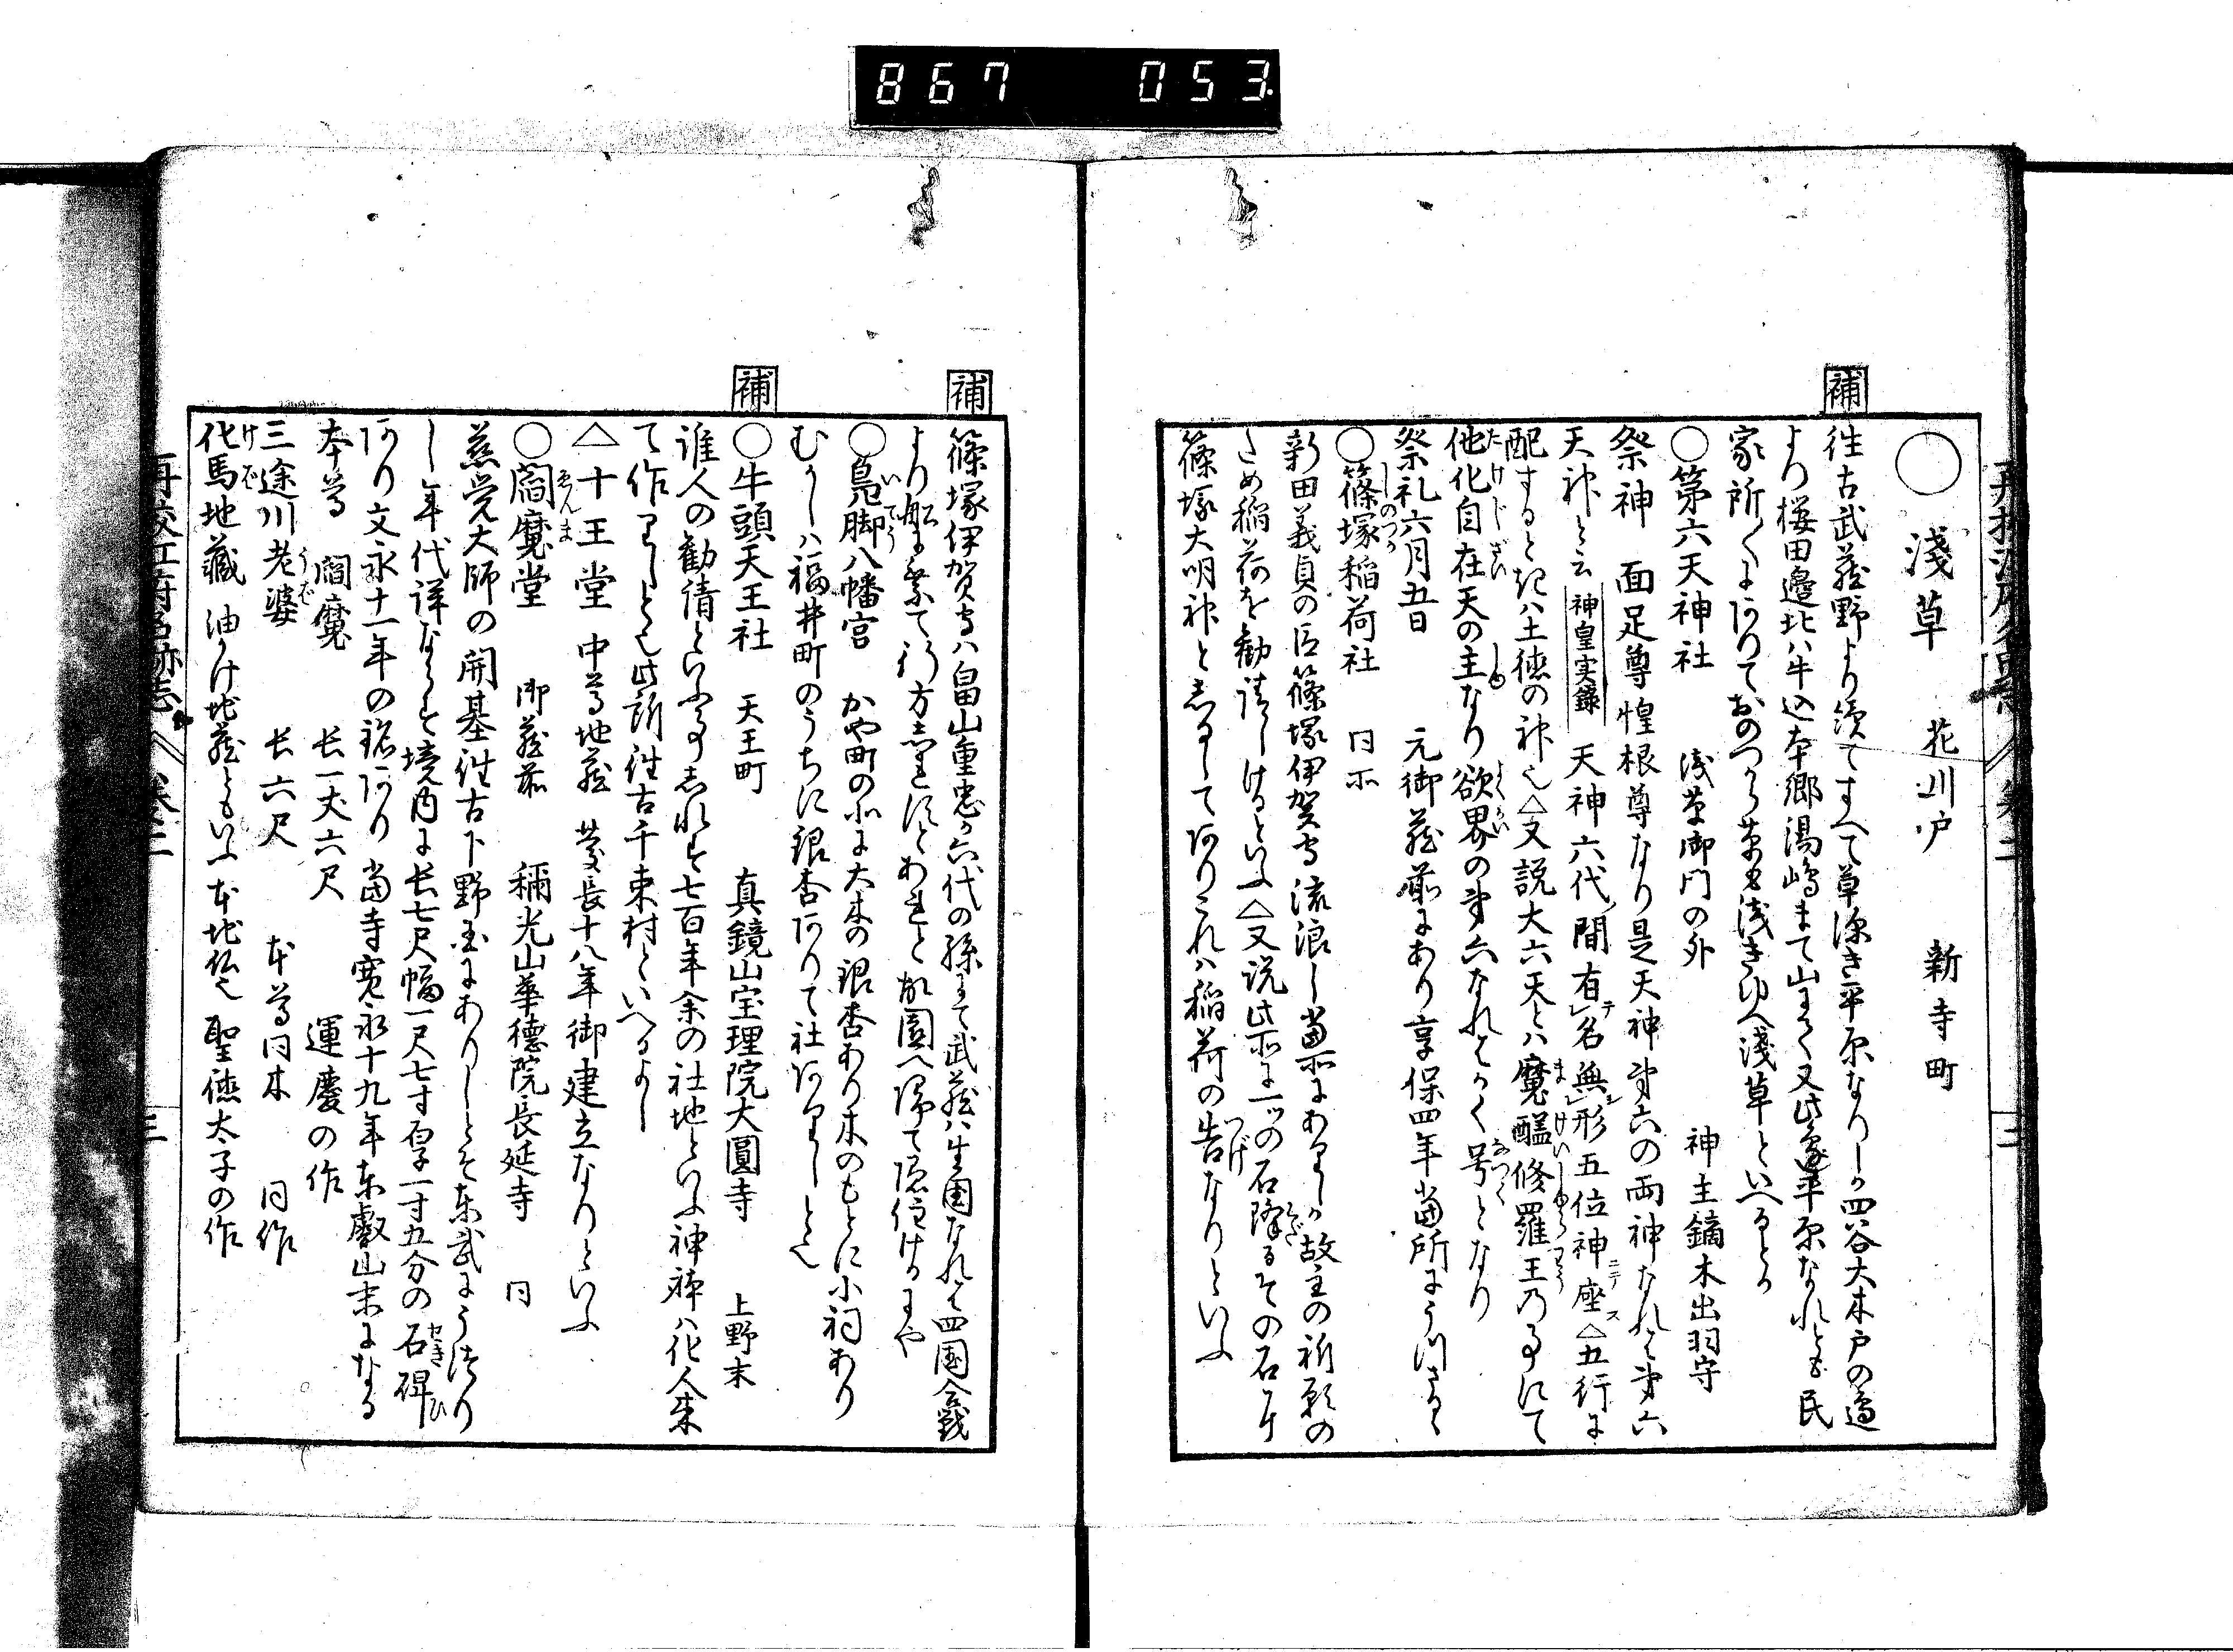 867 053
○ 淺草 花川戸 新寺町
補
往古武蔵野より須てすへて草深き平原なりしか四谷大木戸の邊
より桜田邊北ハ牛込本郷湯嶋まて山にて又此邊平原なれとも民
家所〱にありておのつから草も浅きゆへ淺草といへるとか
○第六天神社 浅草御門の外 神主鏑木出羽守
祭神 面足尊惶根尊なり是天神第六の両神なれは第六
天神と云 神皇実録 天神六代ノ間有テレ名無レ形五位神座ニテス△五行に
配するときハ土徳の神也△又説大六天とハ魔醯修羅王乃事にて
他化自在天の主なり欲界の第六なれはかく号となり
祭礼六月五日 元御蔵前にあり享保四年當所にうつさるゝ
○篠塚稲荷社 同所
新田義貞の臣篠塚伊賀守流浪し當所にありしか故主の祈願の
ため稲荷を勧請しけるといふ△又説此所に一ツの石降るその石に
篠塚大明神としるしてありこれハ稲荷の告なりといふ
補
篠塚伊賀守ハ畠山重忠か六代の孫にて武蔵ハ生国なれは四国合戦
より船に乗て行方志れすとあれと故園へ帰て隠住けるにや
○鳧脚八幡宮 かや町の北に大木の銀杏あり木のもとに小祠あり
むかしハ福井町のうちに銀杏ありて社ありしとも
補
○牛頭天王社 天王町 真鏡山宝理院大圓寺 上野末
誰人の勧請といふ事志れす七百年余の社地といふ神神ハ化人来
て作りしとも此所往古千束村といへるよし
△十王堂 中尊地蔵 慶長十八年御建立なりといふ
○閻魔堂 御蔵前 稱光山華德院長延寺 同
慈覚大師の開基往古下野国にありしとそ東武にうつり
し年代詳ならす境内に長七尺幅一尺七寸厚一寸五分の石碑
あり文永十一年の銘あり 當寺寛永十九年東叡山末になる
本尊 閻魔 長一丈六尺 運慶の作
三途川老婆 長六尺 本尊同木 同作
化馬地藏 油かけ地蔵ともいふ 本地仏也 聖徳太子の作
再校江府名跡志 巻二 三